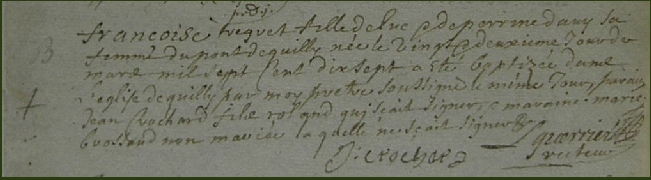 francoise trequet fille de luc & de perrine davy sa
femme du pont de quilly née le vingt & deuxieme Jour de
mars mil sept Cent dix sept a été baptizée dans
L'eglise de quilly par moy pretre soussigné le même Jour, parain
Jean Crochard fils rol qui scait signer, & maraine marie
brossaud non mariée laquelle ne sçait signer
J: crochard
guerrier
recteur